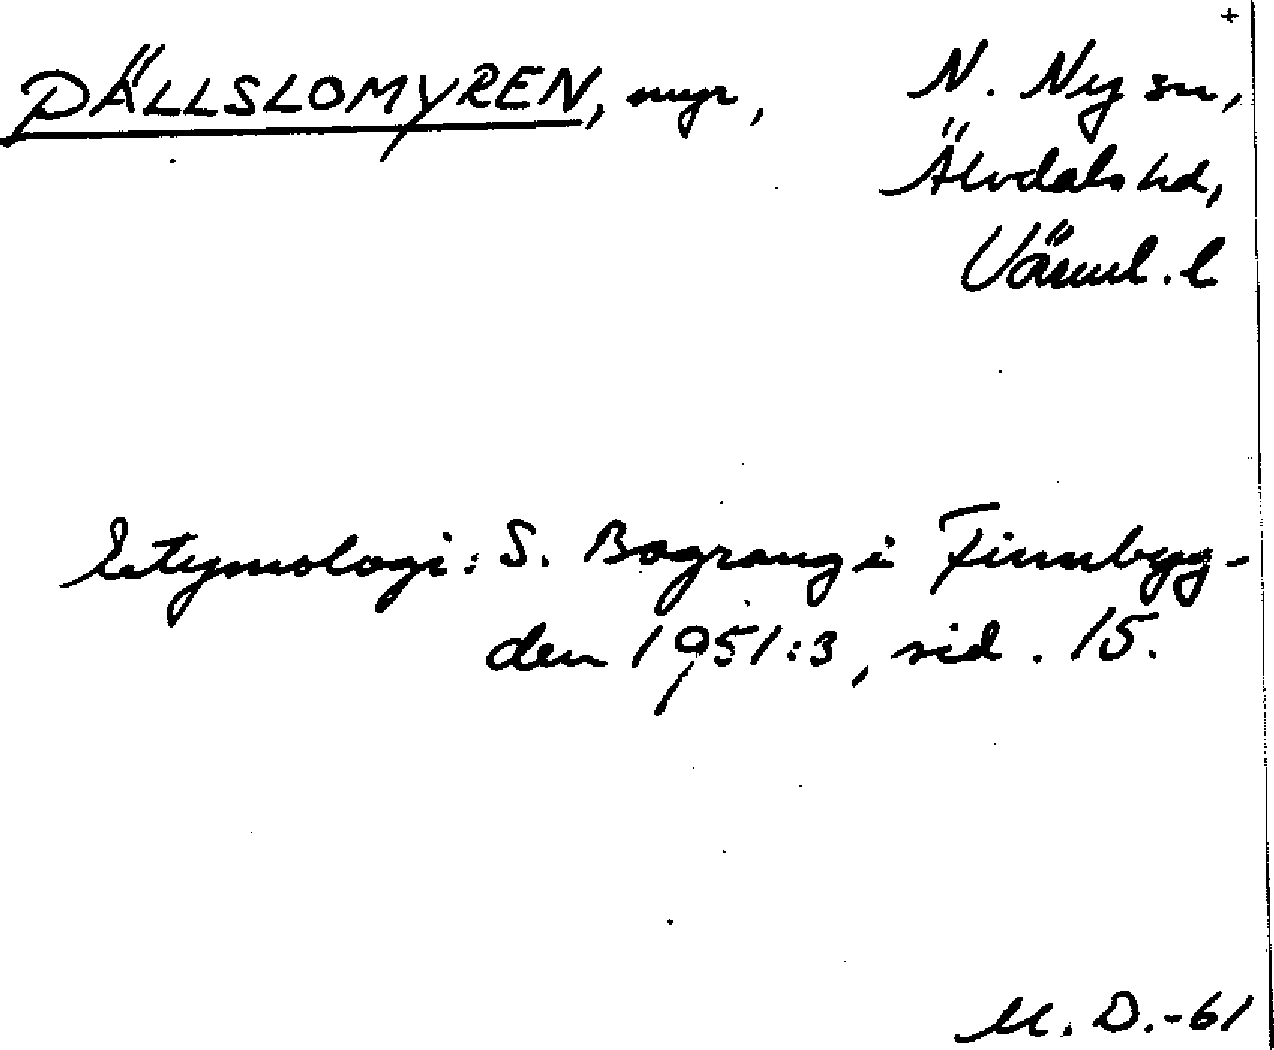 +
PÄLLSLOMYREN, myr, N. Ny sn,
Älvdals hd,
Värml. l
Etymologi: S. Bograng i Finnbyg-
den 1951:3, sid. 15.
M. D. -61